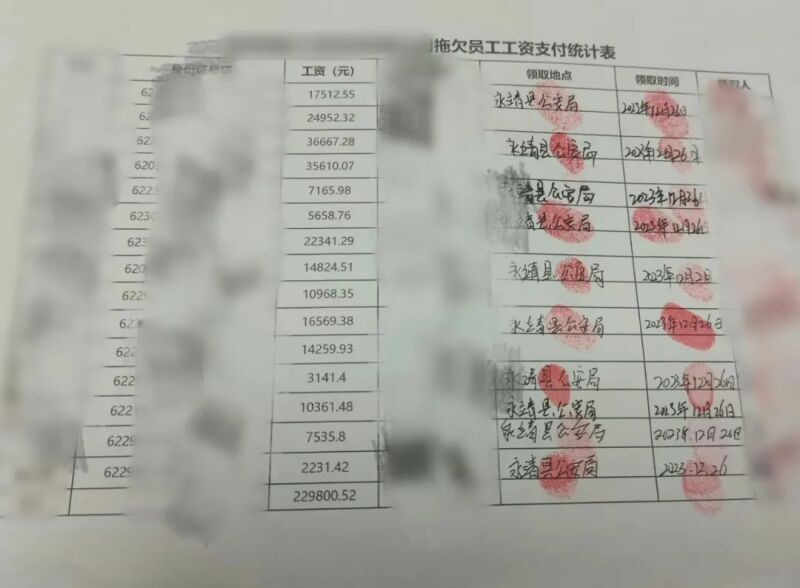 拖欠员工工资支付统计表
工资（元） 领取地点 领取时间
62 17512.55 永靖县公安局 2023年12月26日
62 24952.32
62 36667.28 永靖县公安局
620 35610.07
6223 7165.98 靖县公安局 2023年12月26日
6230 5658.76 靖县公安局 2023年12月26日
62 22341.29
620 14824.51 永靖县公安局 2023年12月2日
6229 10968.35
62 16569.38 永靖县公安局 2023年12月26日
622 14259.93
622 3141.4 永靖县公安局 2023年12月26日
622 10361.48 永靖县公安局 2023年12月26日
6229 7535.8 永靖县公安局 2023年12月26日
6229 2231.42 永靖县公安局 2023.12.26
229800.52